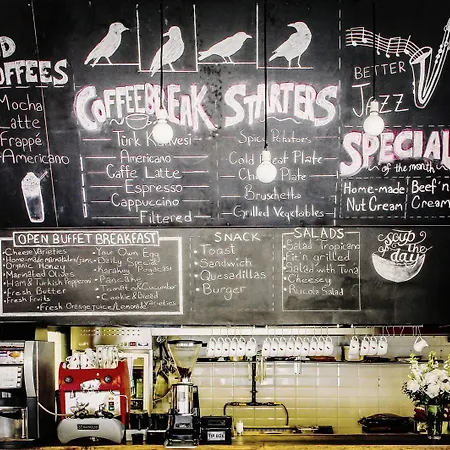 D
COFFEES
Mocha
Latte
Frappé
Americano
COFFEEBREAK
Türk Kahvesi
Americano
Caffe Latte
Espresso
Cappuccino
Filtered
STARTERS
Spice Potatoes
Cold Meat Plate
Plate
Bruschetta
Grilled Vegetables
BETTER
JAZZ
SPECIAL
of the month
Home-made
Nut Cream
Beef'n
Cream
OPEN BUFFET BREAKFAST
Cheese Varieties
Organic Honey
Homemade
Marinated Olives
Ham & Turkish Pepperoni
Fresh Butter
Fresh Fruits
Fresh Orange Juice/Lemonade
Your Own Egg
Daily Special
Karaköy Poğaçası
Pancake
Tomato & Cucumber
Cookie & Bread
Varieties
SNACK
Toast
Sandwich
Quesadillas
Burger
SALADS
Salad Tropicano
Fit'n grilled
Salad with Tuna
Cheesey
Rucola Salad
soup of
the day
TIP BOX